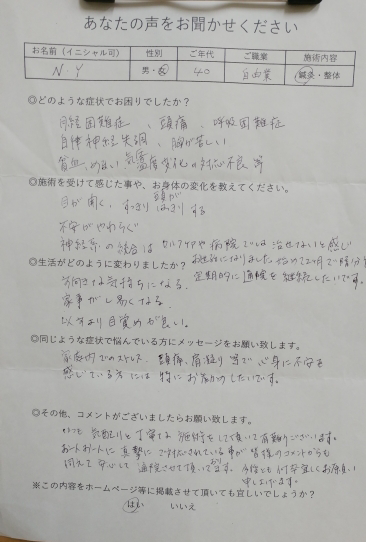 あなたの声をお聞かせください
お名前（イニシャル可） 性別 ご年代 ご職業 施術内容
N Y 男・女 40 自由業 鍼灸・整体
◎どのような症状でお困りでしたか？
困難症、頭痛、呼吸困難症
自律神経失調、胸が苦しい
貧血、めまい、気温 温度変化の対応不良 等
◎施術を受けて感じた事や、お身体の変化を教えてください。
目が開く、頭が すっきり はっきり する
不安がやわらぐ
神経系の 場合は セルフケアや 病院では 治せないと感じ
◎生活がどのように変わりましたか？
お世話になりました
前向きな気持ちになる。
定期的に通院を継続したいです。
家事がし易くなる
以前より目覚めが良い。
◎同じような症状で悩んでいる方にメッセージをお願い致します。
家庭内でのストレス、頭痛、肩凝り 等で 心身に不安を
感じている方には 特にお勧めしたいです。
◎その他、コメントがございましたらお願い致します。
いつも 気配りと丁寧な 施術をして頂いて有難うございます。
真摯に 対応されている事が 皆様のコメントからも
伺えて 安心して 通院させて頂いております。今後とも何卒宜しくお願い
申し上げます。
※この内容をホームページ等に掲載させて頂いても宜しいでしょうか？
はい いいえ